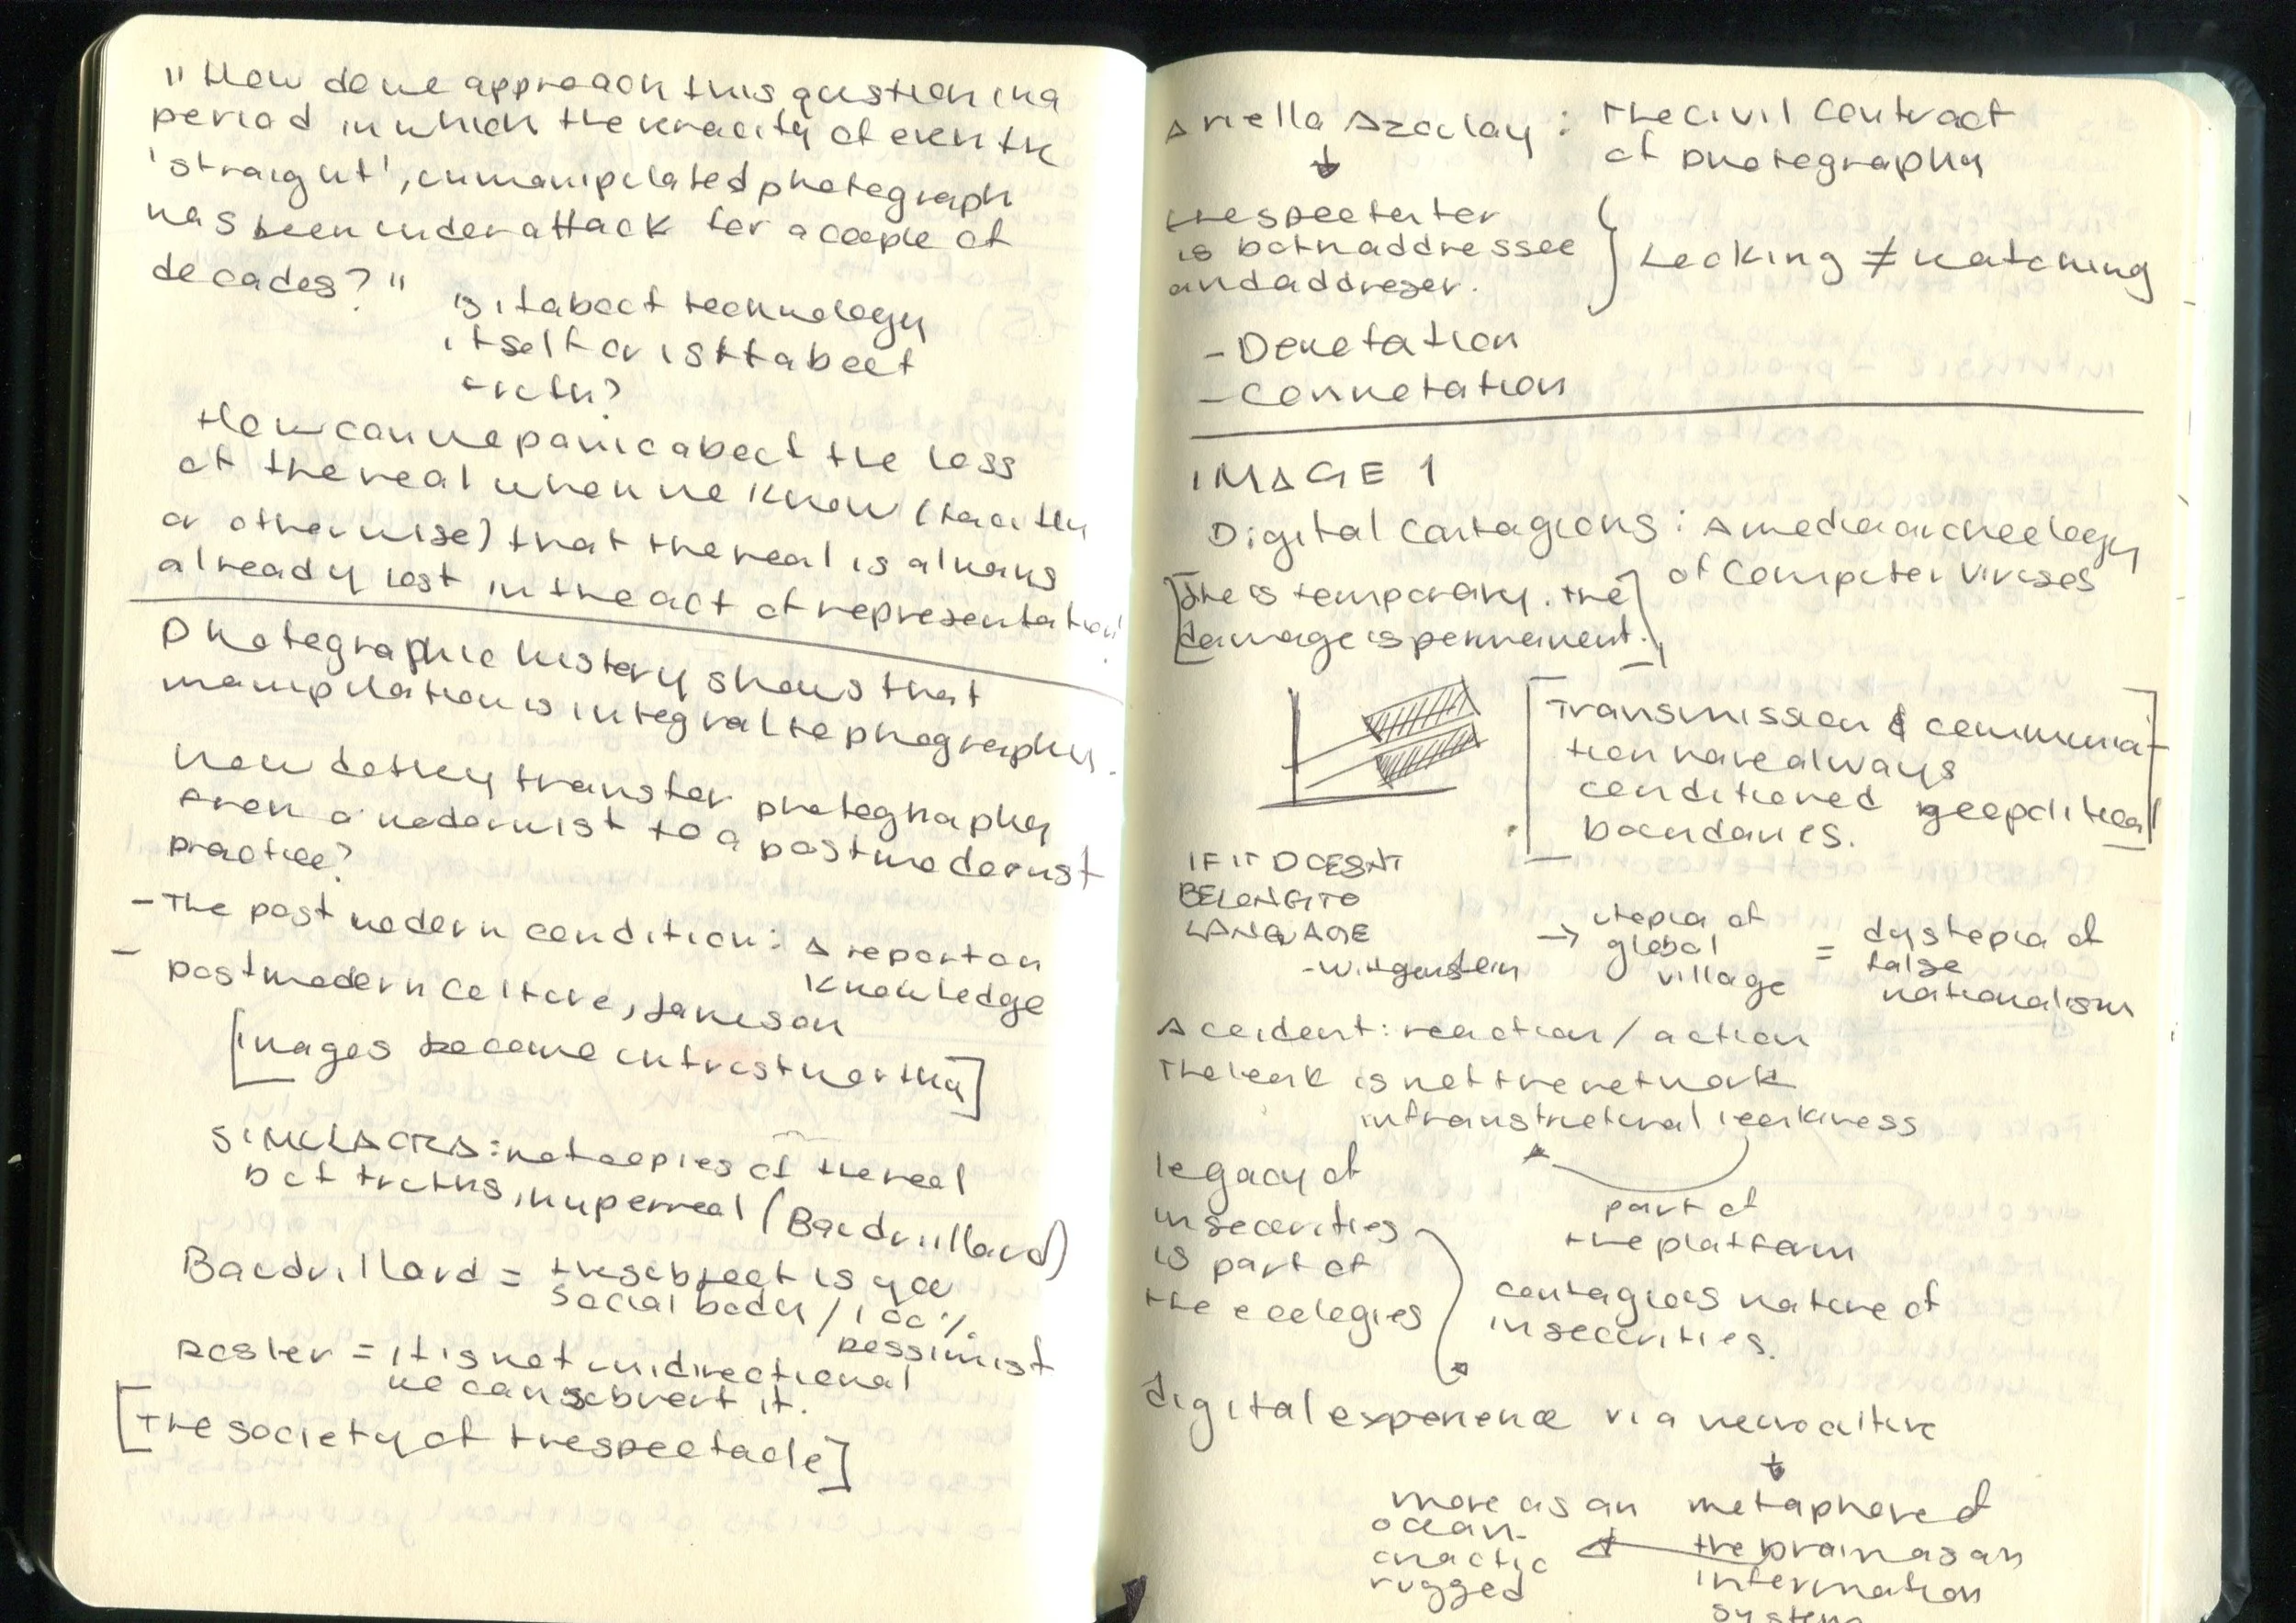 "How do we approach this question in a
period in which the veracity of even the
'straight', unmanipulated photograph
has been under attack for a couple of
decades?"
is it about technology
itself or is it about
truth?
How can we panic about the loss
of the real when we know (tacitly
or otherwise) that the real is always
already lost in the act of representation!
Photographic history shows that
manipulation is integral to phography.
How do they transfer photography
from a modernist to a postmodernist
practice?
- The post modern condition: A report on
knowledge
- postmodern culture, Jameson
[images become untrustworthy]
SIMULACRA: not copies of the real
but truths, hyperreal (Baudrillard)
Baudrillard = the subject is you
social body / 100%
pessimist
Poster = it is not unidirectional
we can subvert it.
[The society of the spectacle]
Ariella Azoulay : The civil contract
of photography
the spectator
is both addressee
and addresser.
Looking ≠ watching
- Denotation
- Connotation
IMAGE 1
Digital Contagions : A media archeology
of computer viruses
[The is temporary. The
damage is permanent.]
[Transmission & communica-
tion have always
conditioned geopolitical
boundaries.]
IF IT DOESNT
BELONG TO
LANGUAGE
- Wittgenstein
→ utopia of
global
village
= dystopia of
false
nationalism
Accident: reaction / action
The leak is not the network
infranstructural leakiness
part of
the platform
legacy of
insecurities
is part of
the ecologies
contagious nature of
insecurities.
digital experience via neuroculture
metaphore of
the brain as an
information
system
more as an
ocean-
chaotic
rugged